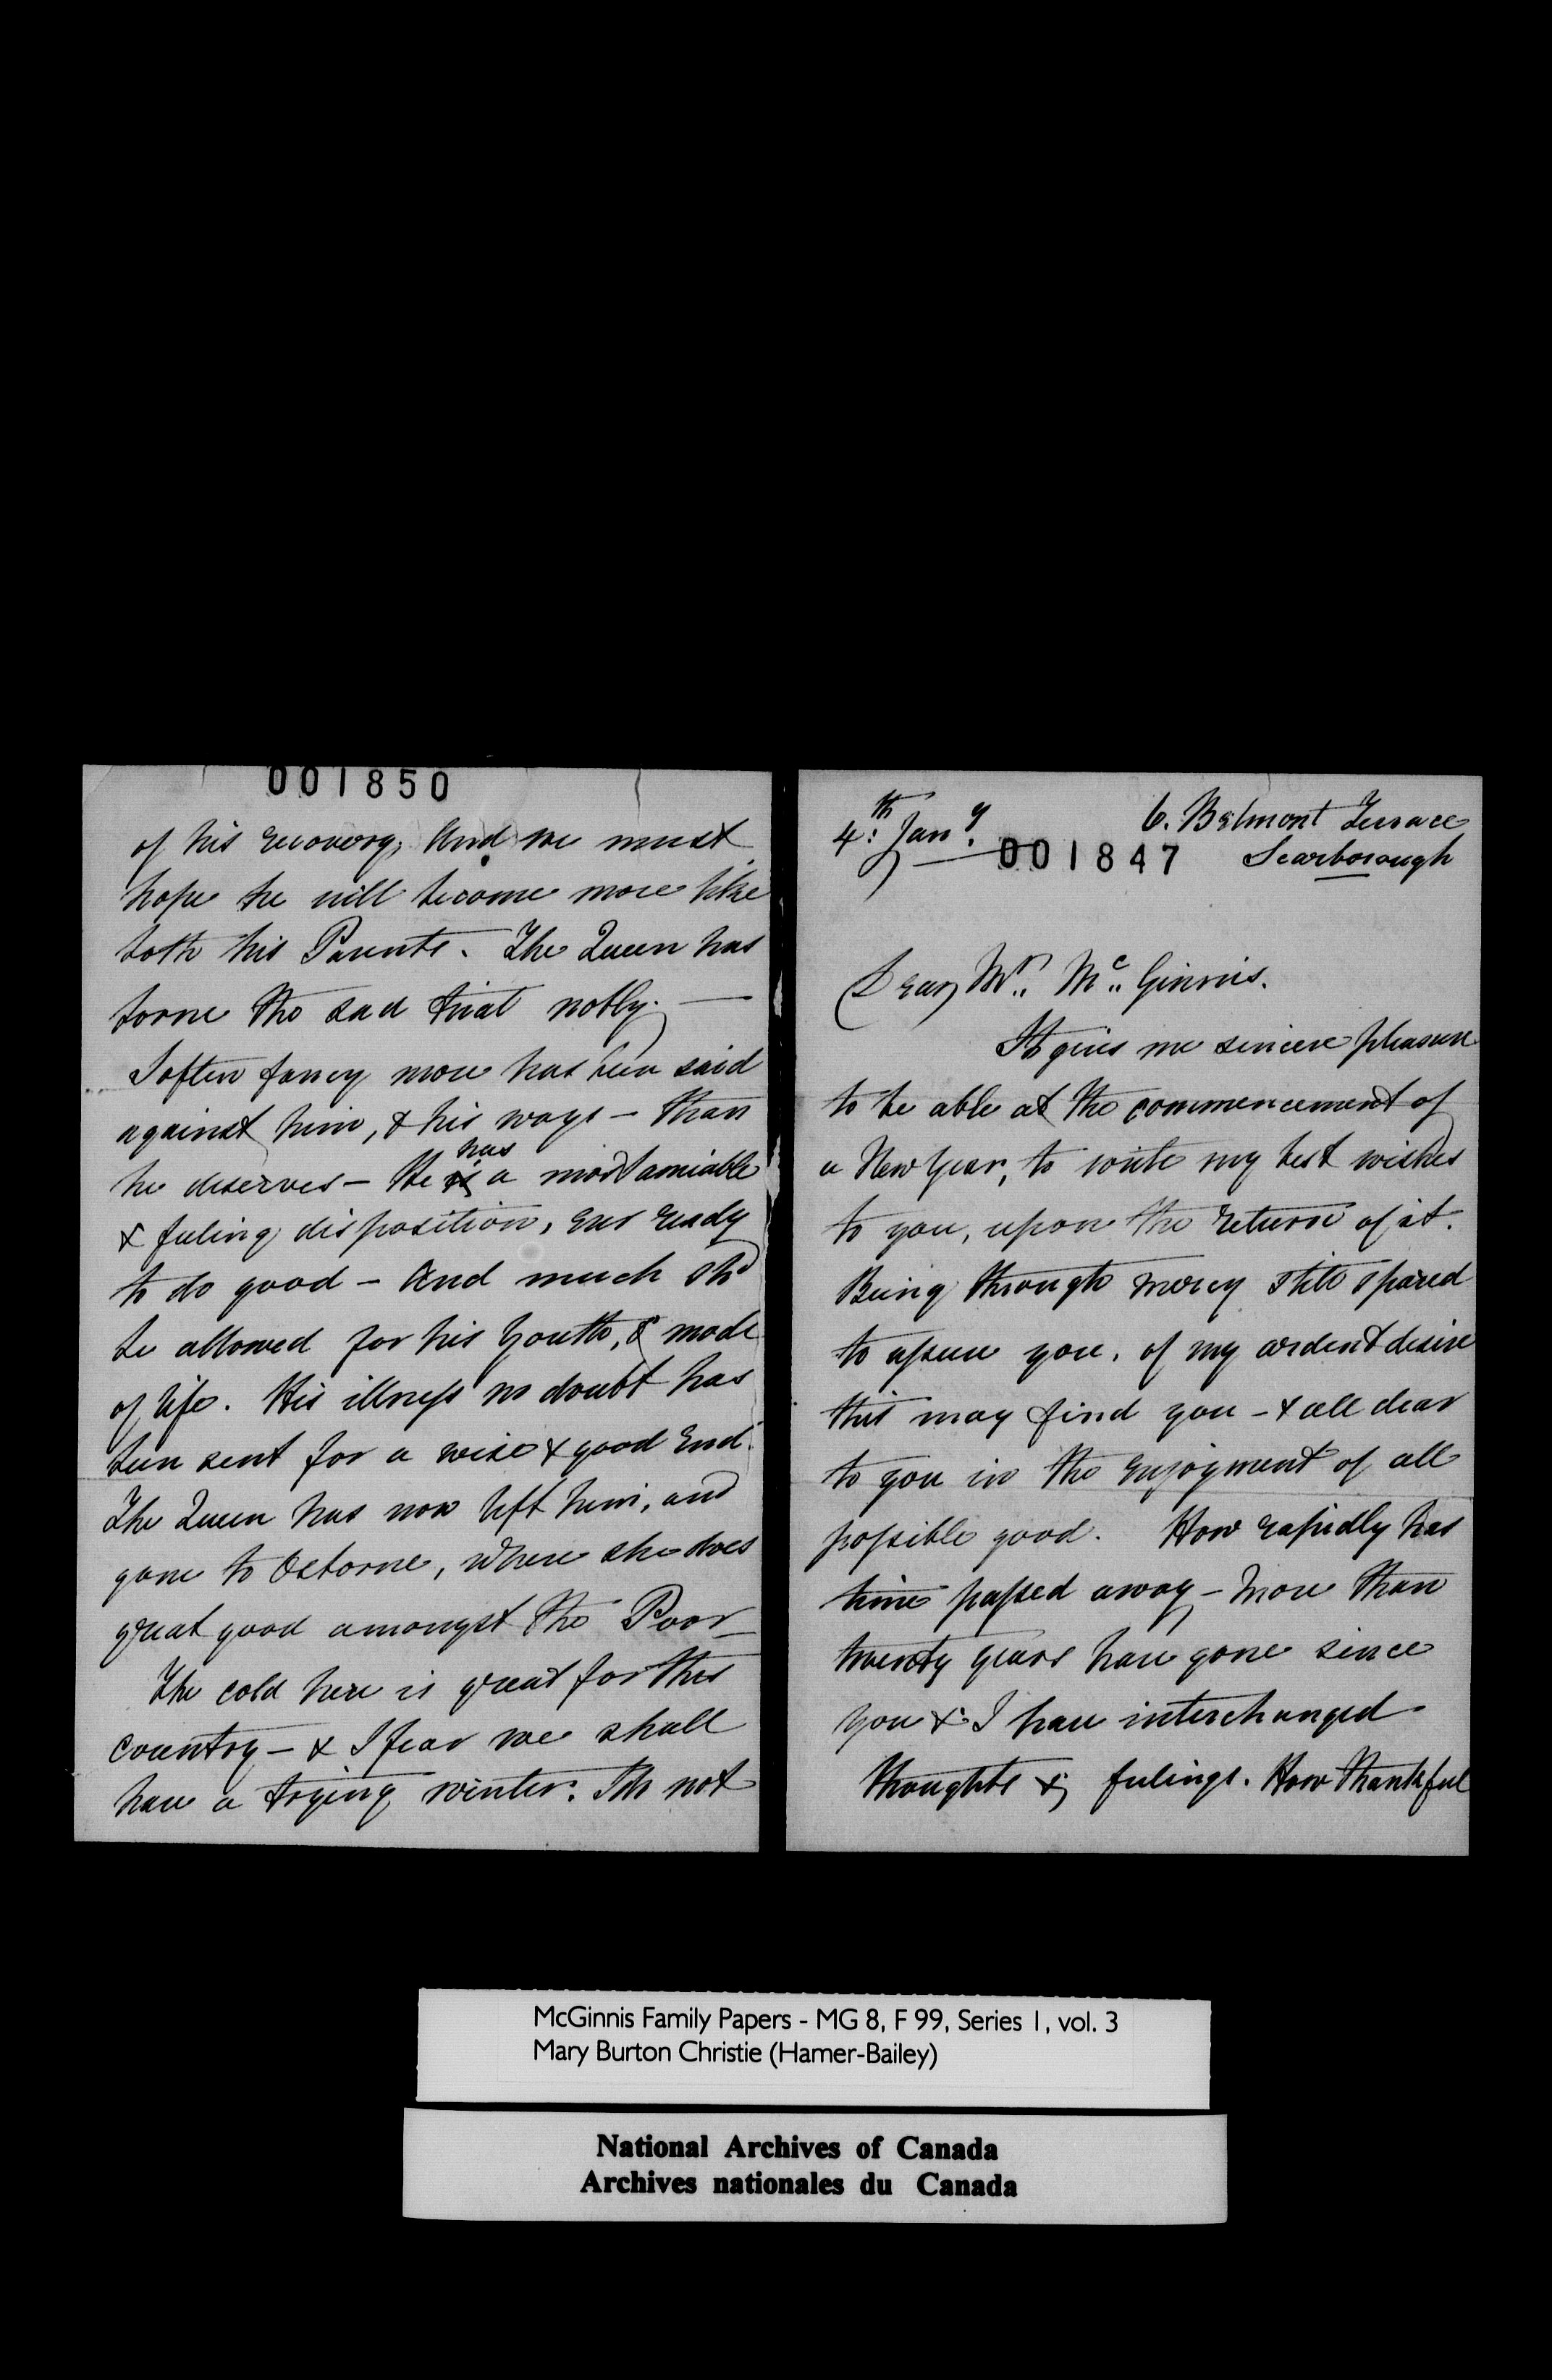 001850
of his recovery, And we must
hope he will become more like
both his Parents. The Queen has
borne the sad trial nobly. —
I often fancy more has been said
against him, & his ways – than
has
he deserves – He is a most amiable
& feeling disposition, ever ready
to do good – And much shd
be allowed for his Youth, & mode
of life. His illness no doubt has
been sent for a wise & good End.
The Queen has now left him, and
gone to Osborne, where she does
great good amongst the Poor –
The cold here is great for this
country – & I fear we shall
have a trying winter. Tho not
4:th Jany.
6. Belmont Terrace
001847
Scarborough
Dear Mr.. Mc.. Ginnis.
It gives me sincere pleasure
to be able at the commencement of
a New Year, to write my best wishes
to you, upon the return of it.
Being through mercy still spared
to assure you, of my ardent desire
this may find you – & all dear
to you in the Enjoyment of all
possible good. How rapidly has
time passed away – More than
twenty years have gone since
you & I have interchanged
thoughts & feelings. How thankful
McGinnis Family Papers - MG 8, F 99, Series 1, vol. 3
Mary Burton Christie (Hamer-Bailey)
National Archives of Canada
Archives nationales du Canada